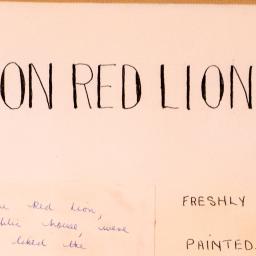 ON RED LION
Red Lion,
house, were
liked the
FRESHLY
PAINTED.